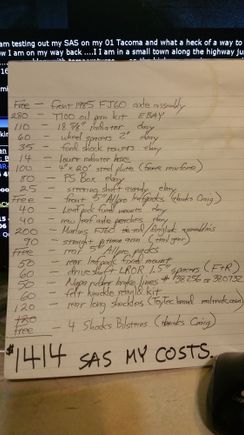 am testing out my SAS on my 01 Tacoma and what a heck of a way to
ow I am on my way back ....I I am in a small town along the highway ju
Free - front 1985 FJ60 axle assembly
280 - T100 oil pan kit EBAY
110 - 18 7/8" radiator ebay
60 - wheel spacers 2" ebay
35 - ford shock towers ebay
14 - lower radiator hose
100 - 4"x20' steel plate (frame reinforce)
80 - PS Box ebay
25 - steering shaft ebay
Free - front 5" Allpro leafpacks (thanks Craig)
40 - Leafpack front mounts ebay
40 - new leaf axle perches ebay
200 - Marlins FJ60 tierod/Draglink
90 - straight pitman arm (trail gear)
Free - rear 5" Allpro packs
50 - rear leafpack front mount
60 - driveshaft LROR 1.5" spacers (F+R)
50 - Napa rubber brake lines #
60 - felt knuckle rebuild kit
120 - rear long shackles
Free - 4 Shocks Bilsteins (thanks Craig)
$1414 SAS MY COSTS.